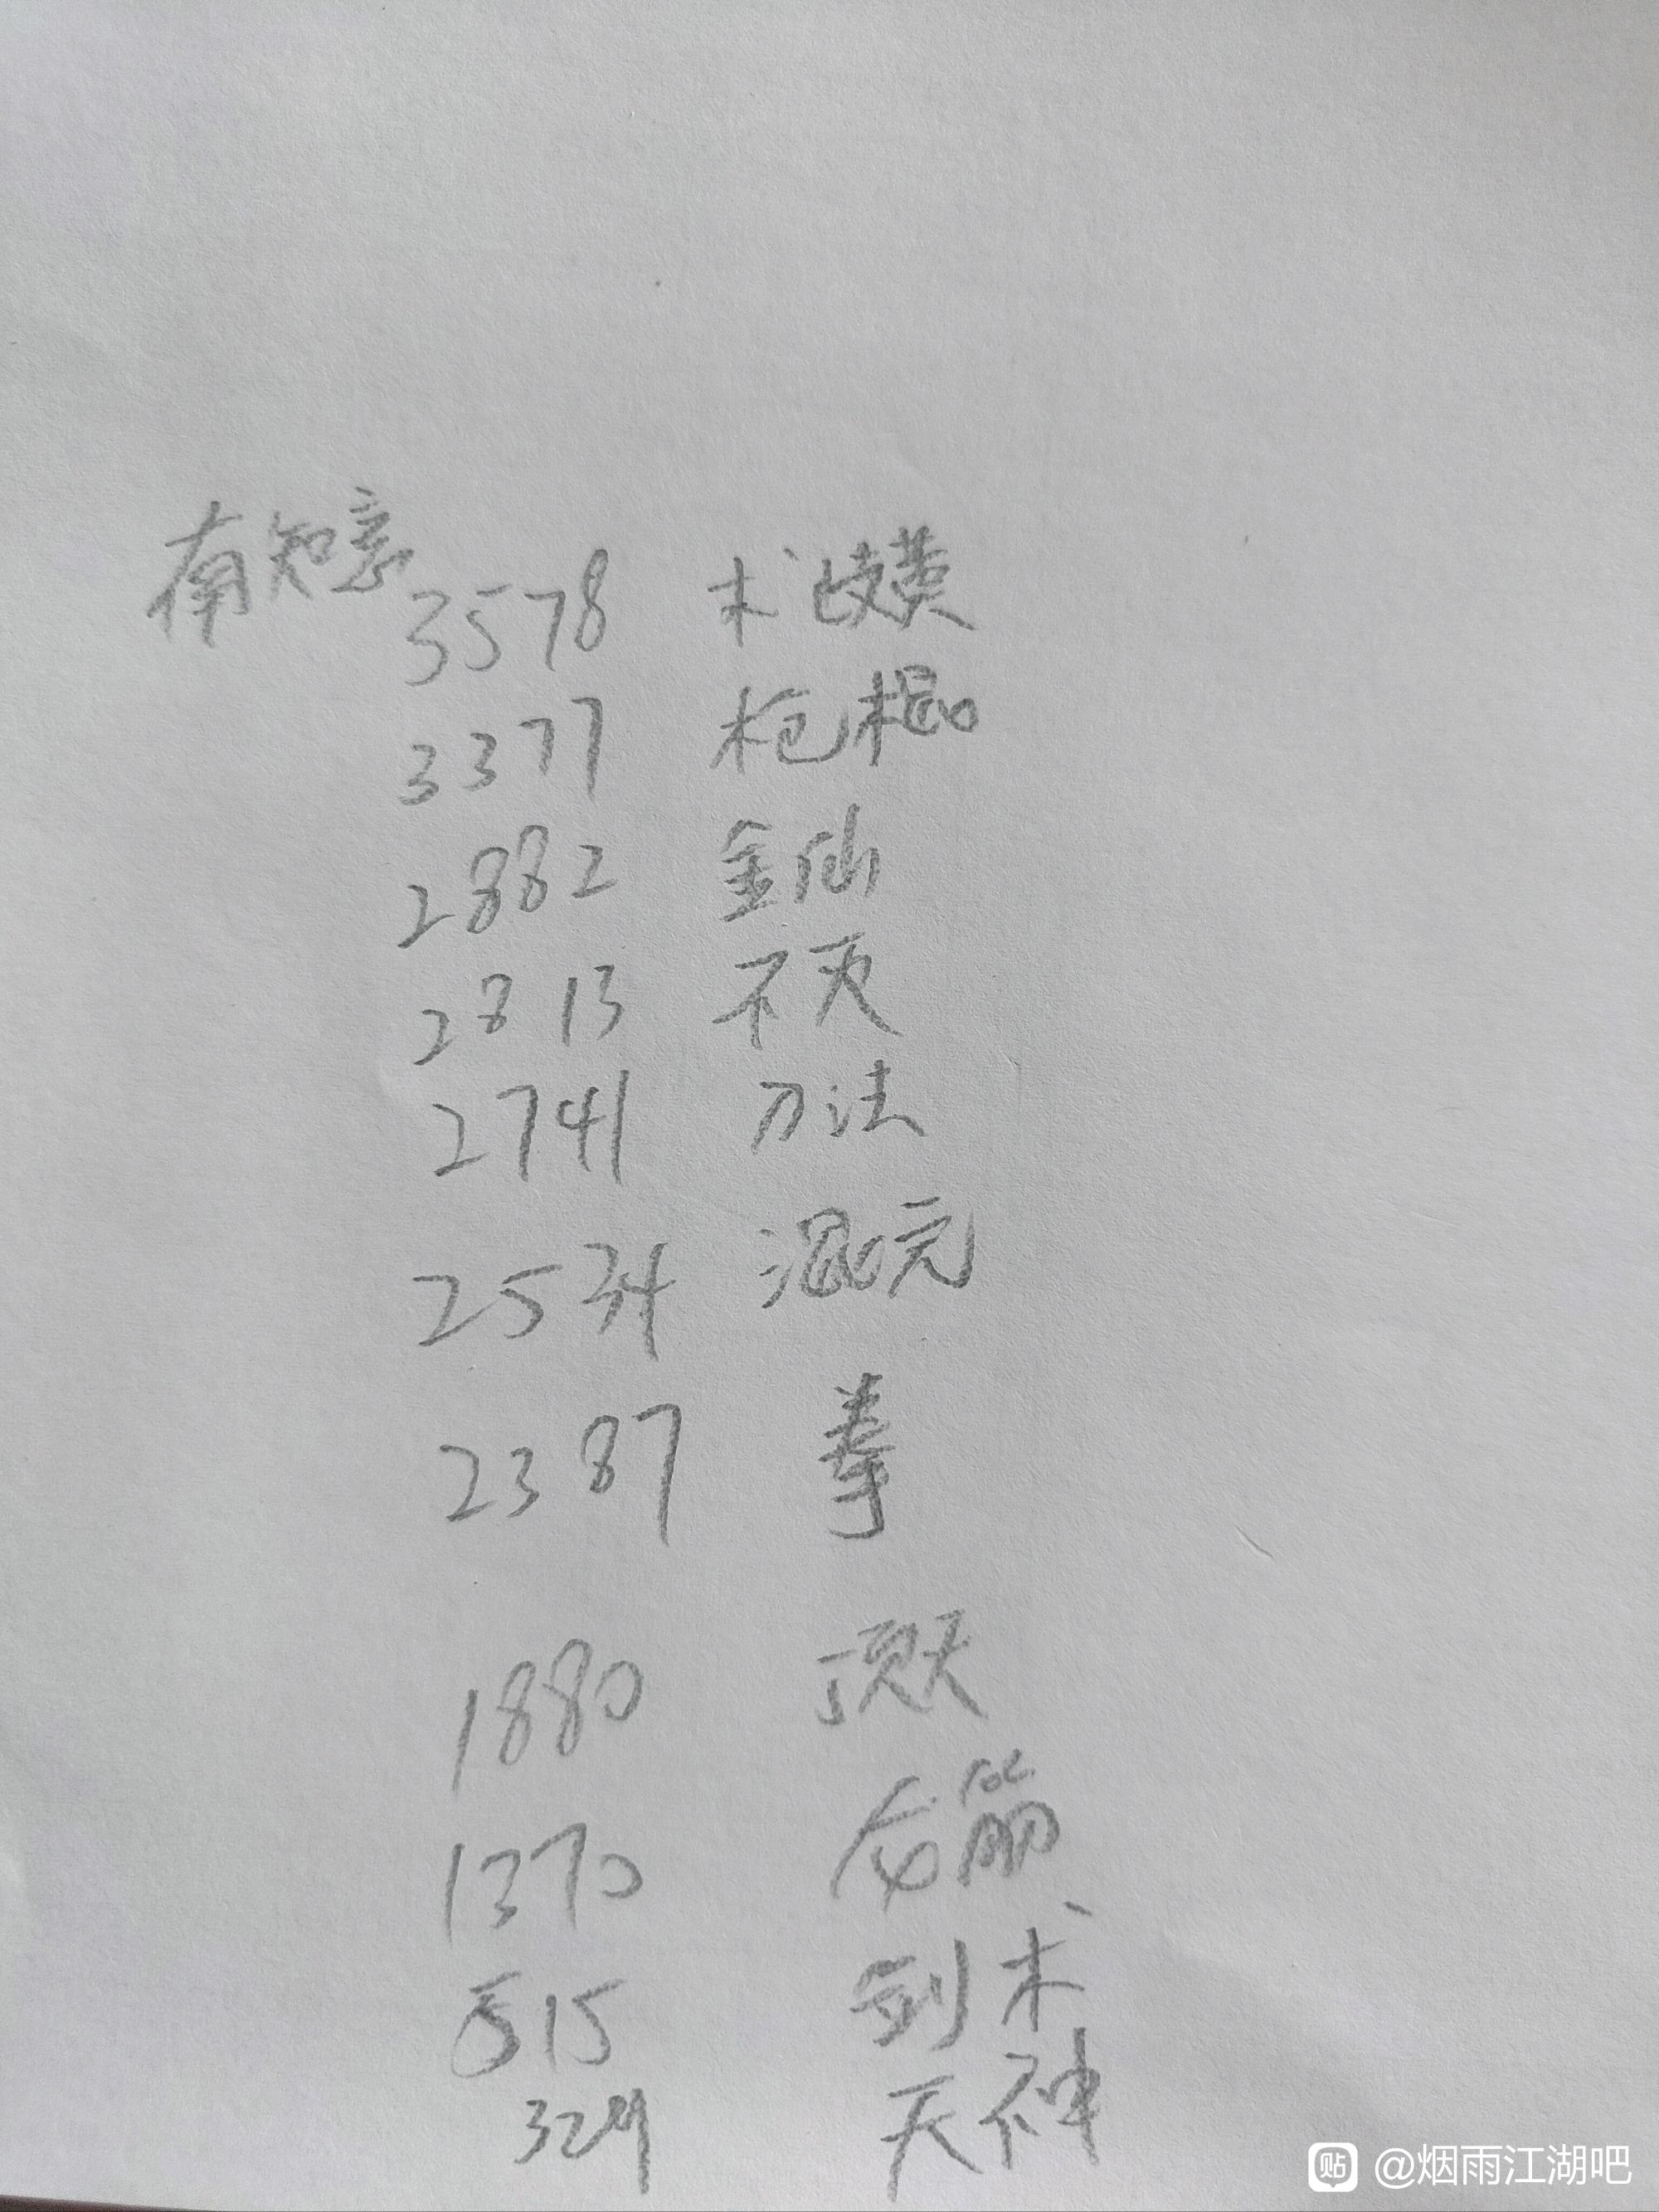 南知意
3578 术改黄
3377 枪棍
2882 金仙
2813 不灭
2741 刀法
2534 混元
2387 拳
1880 顶天
1370 筋
515 剑术
324 天神
贴 @烟雨江湖吧